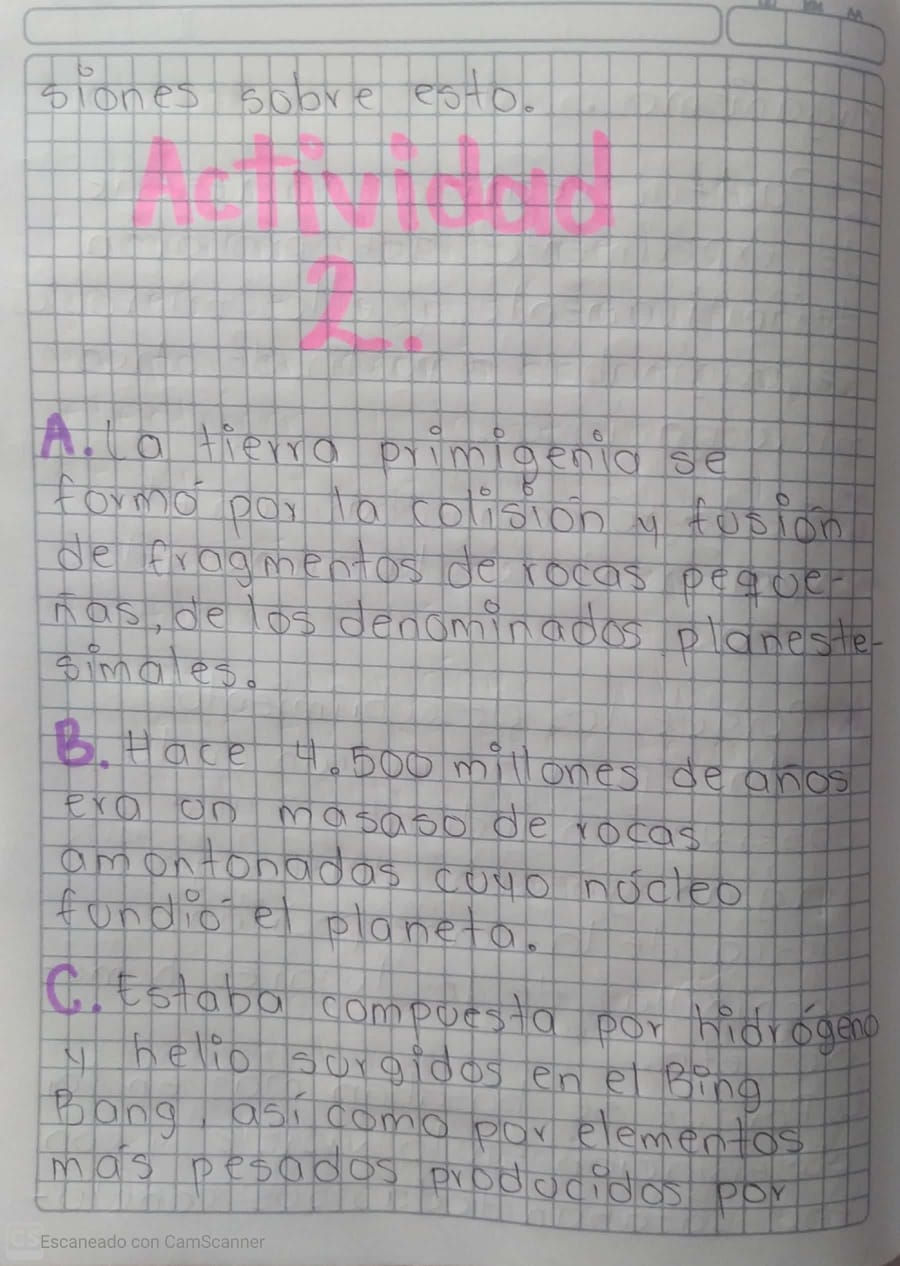 siones sobre esto.
Actividad
2.
A. La tierra primigenia se
formó por la colisión y fusión
de fragmentos de rocas peque-
ñas, de los denominados planeste-
simales.
B. Hace 4.500 millones de años
era un masaso de rocas
amontonadas cuyo núcleo
fundió el planeta.
C. Estaba compuesta por hidrógeno
y helio surgidos en el Bing
Bang, así como por elementos
más pesados producidos por
CS Escaneado con CamScanner